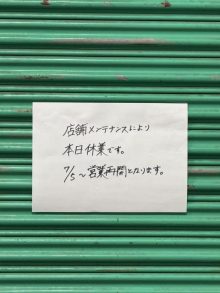 店舗メンテナンスにより
本日休業です。
7/5〜営業再開となります。